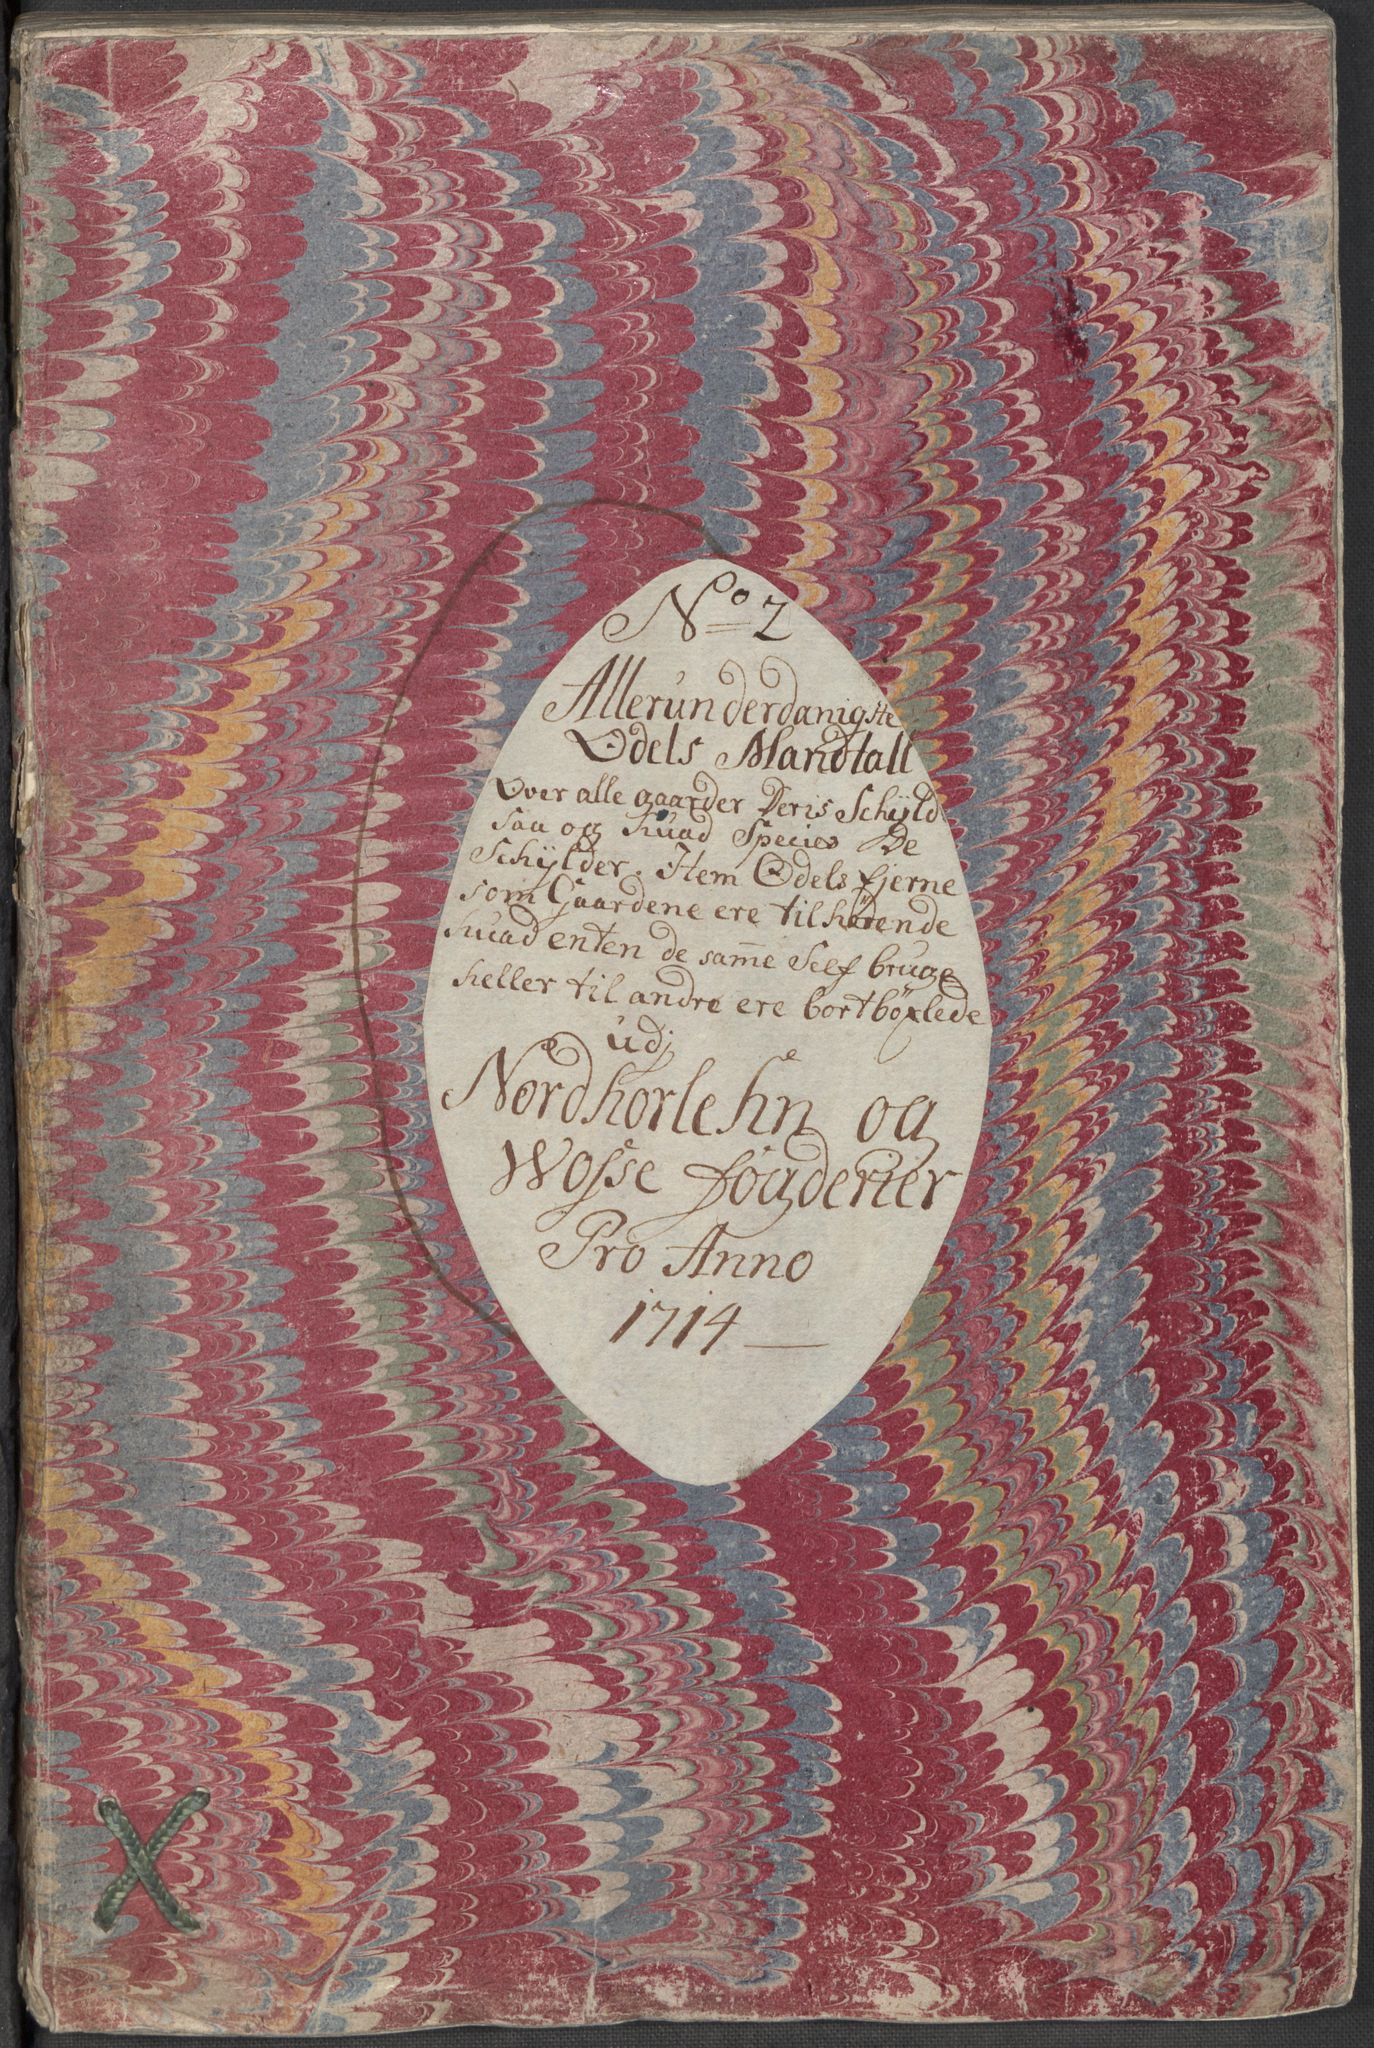 No 2
Allerunderdanigste
Odels Mandtall
Over alle gaarder Deris Schyld
saa og huad Species De
Schylder. Item Odels Ejerne
som Gaardene ere tilhørende
huad enten de samme self bruge
heller til andre ere bortbøxlede
udj
Nordhorlehn og
Wosse fogderier
Pro Anno
1714